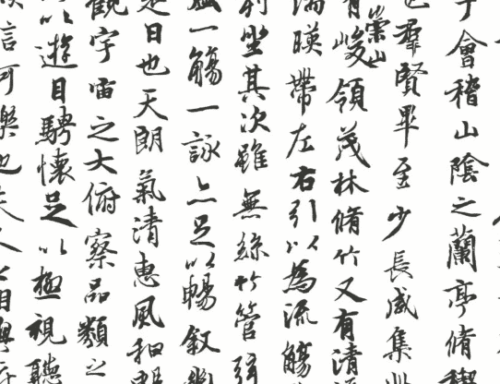 于會稽山陰之蘭亭脩禊
也羣賢畢至少長咸集此
有崇山峻領茂林脩竹又有清流
湍暎帶左右引以為流觴
列坐其次雖無絲竹管弦
一觴一詠亦足以暢敘幽
是日也天朗氣清惠風和暢
觀宇宙之大俯察品類之
以遊目騁懷足以極視聽
信可樂也夫人之相與